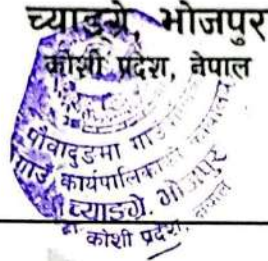 च्याङग्रे, भोजपुर
कोशी प्रदेश, नेपाल
पौवादुङमा गाउँ
गाउँ कार्यपालिकाको
च्याङग्रे, भोजपुर
कोशी प्रदेश, नेपाल